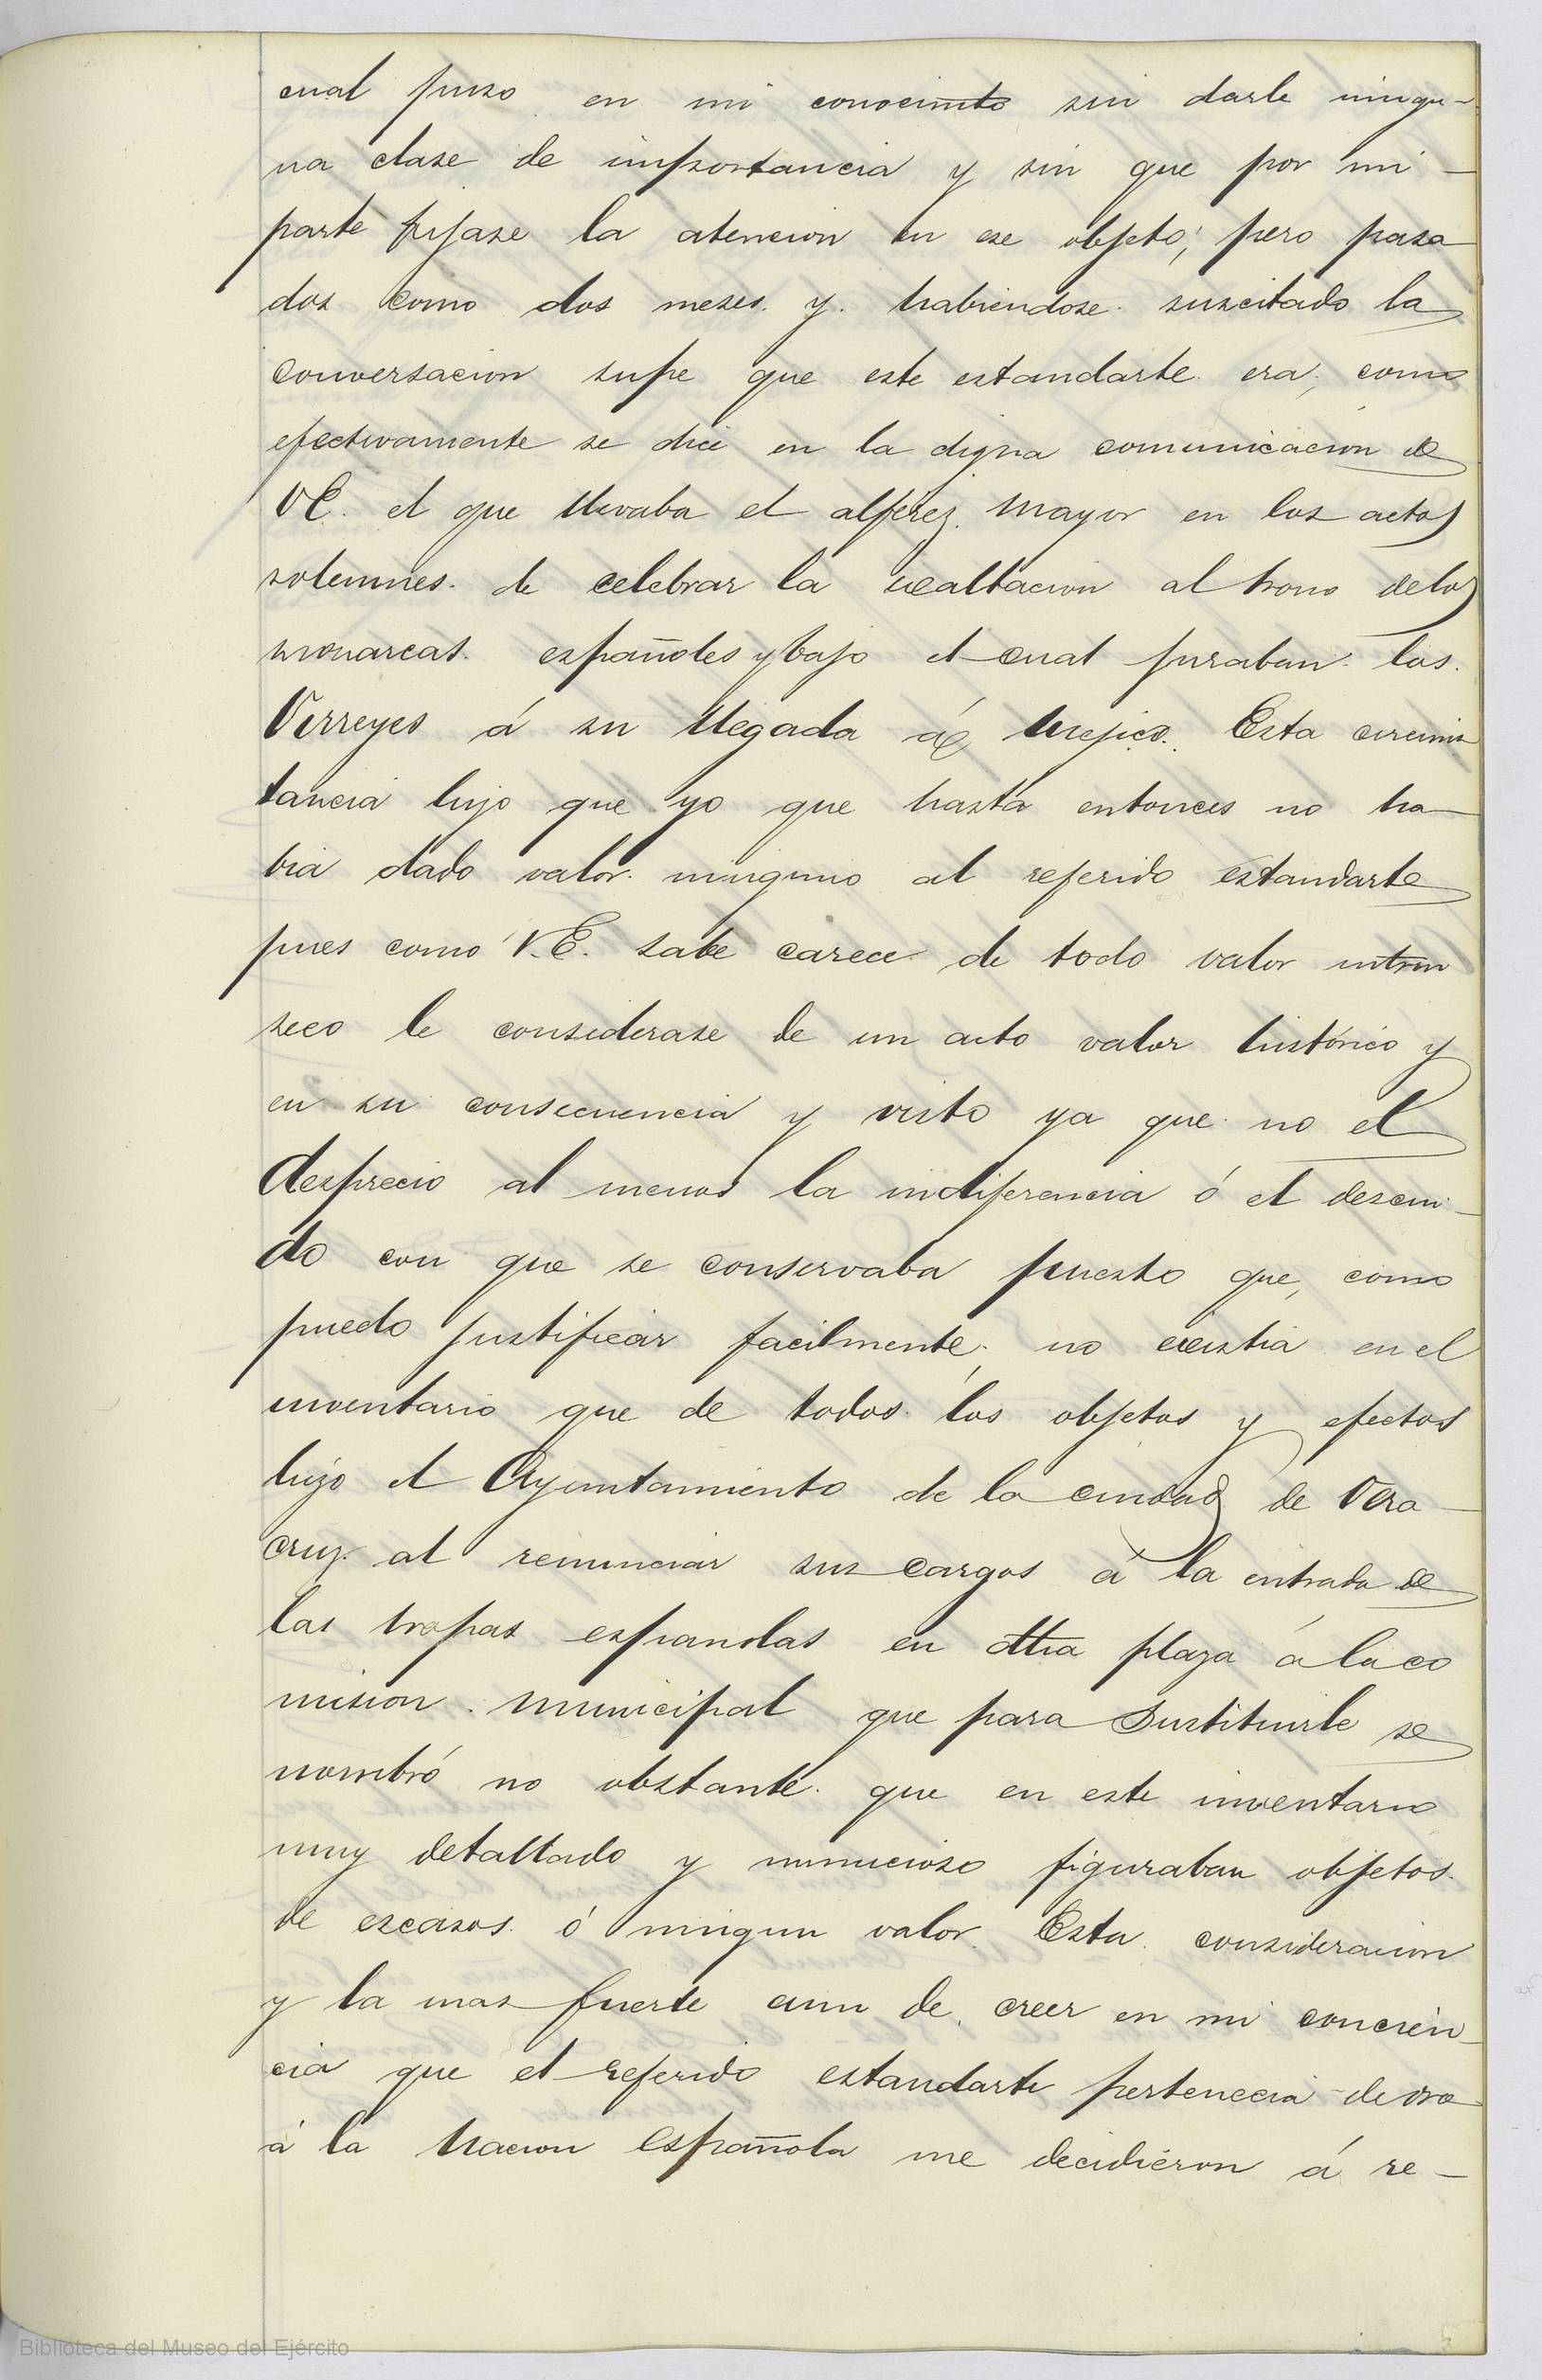 cual puso en mi conocimto sin darle ningu-
na clase de importancia y sin que por mi
parte fijase la atencion en ese objeto; pero pasa
dos como dos meses y habiendose suscitado la
conversacion supe que este estandarte era, como
efectivamente se dice en la digna comunicacion de
VE. el que llevaba el alferez mayor en los actos
solemnes de celebrar la exaltacion al trono de los
monarcas españoles y bajo el cual juraban los
Virreyes á su llegada á Mejico. Esta circuns
tancia hizo que yo que hasta entonces no ha
bia dado valor ninguno al referido estandarte
pues como V.E. sabe carece de todo valor intrin
seco le considerase de un acto valor histórico y
en su consecuencia y visto ya que no el
desprecio al menos la indiferencia ó el descui-
do con que se conservaba puesto que, como
puedo justificar facilmente, no existia en el
inventario que de todos los objetos y efectos
hizo el Ayuntamiento de la ciudad de Vera
cruz al renunciar sus cargos á la entrada de
las tropas españolas en dha plaza á la co
mision municipal que para sustituirle se
nombró no obstante que en este inventario
muy detallado y minucioso figuraban objetos
de escasos ó ningun valor. Esta consideracion
y la mas fuerte aun de creer en mi concien-
cia que el referido estandarte pertenecia
á la Nacion Española me decidieron á re-
Biblioteca del Museo del Ejército